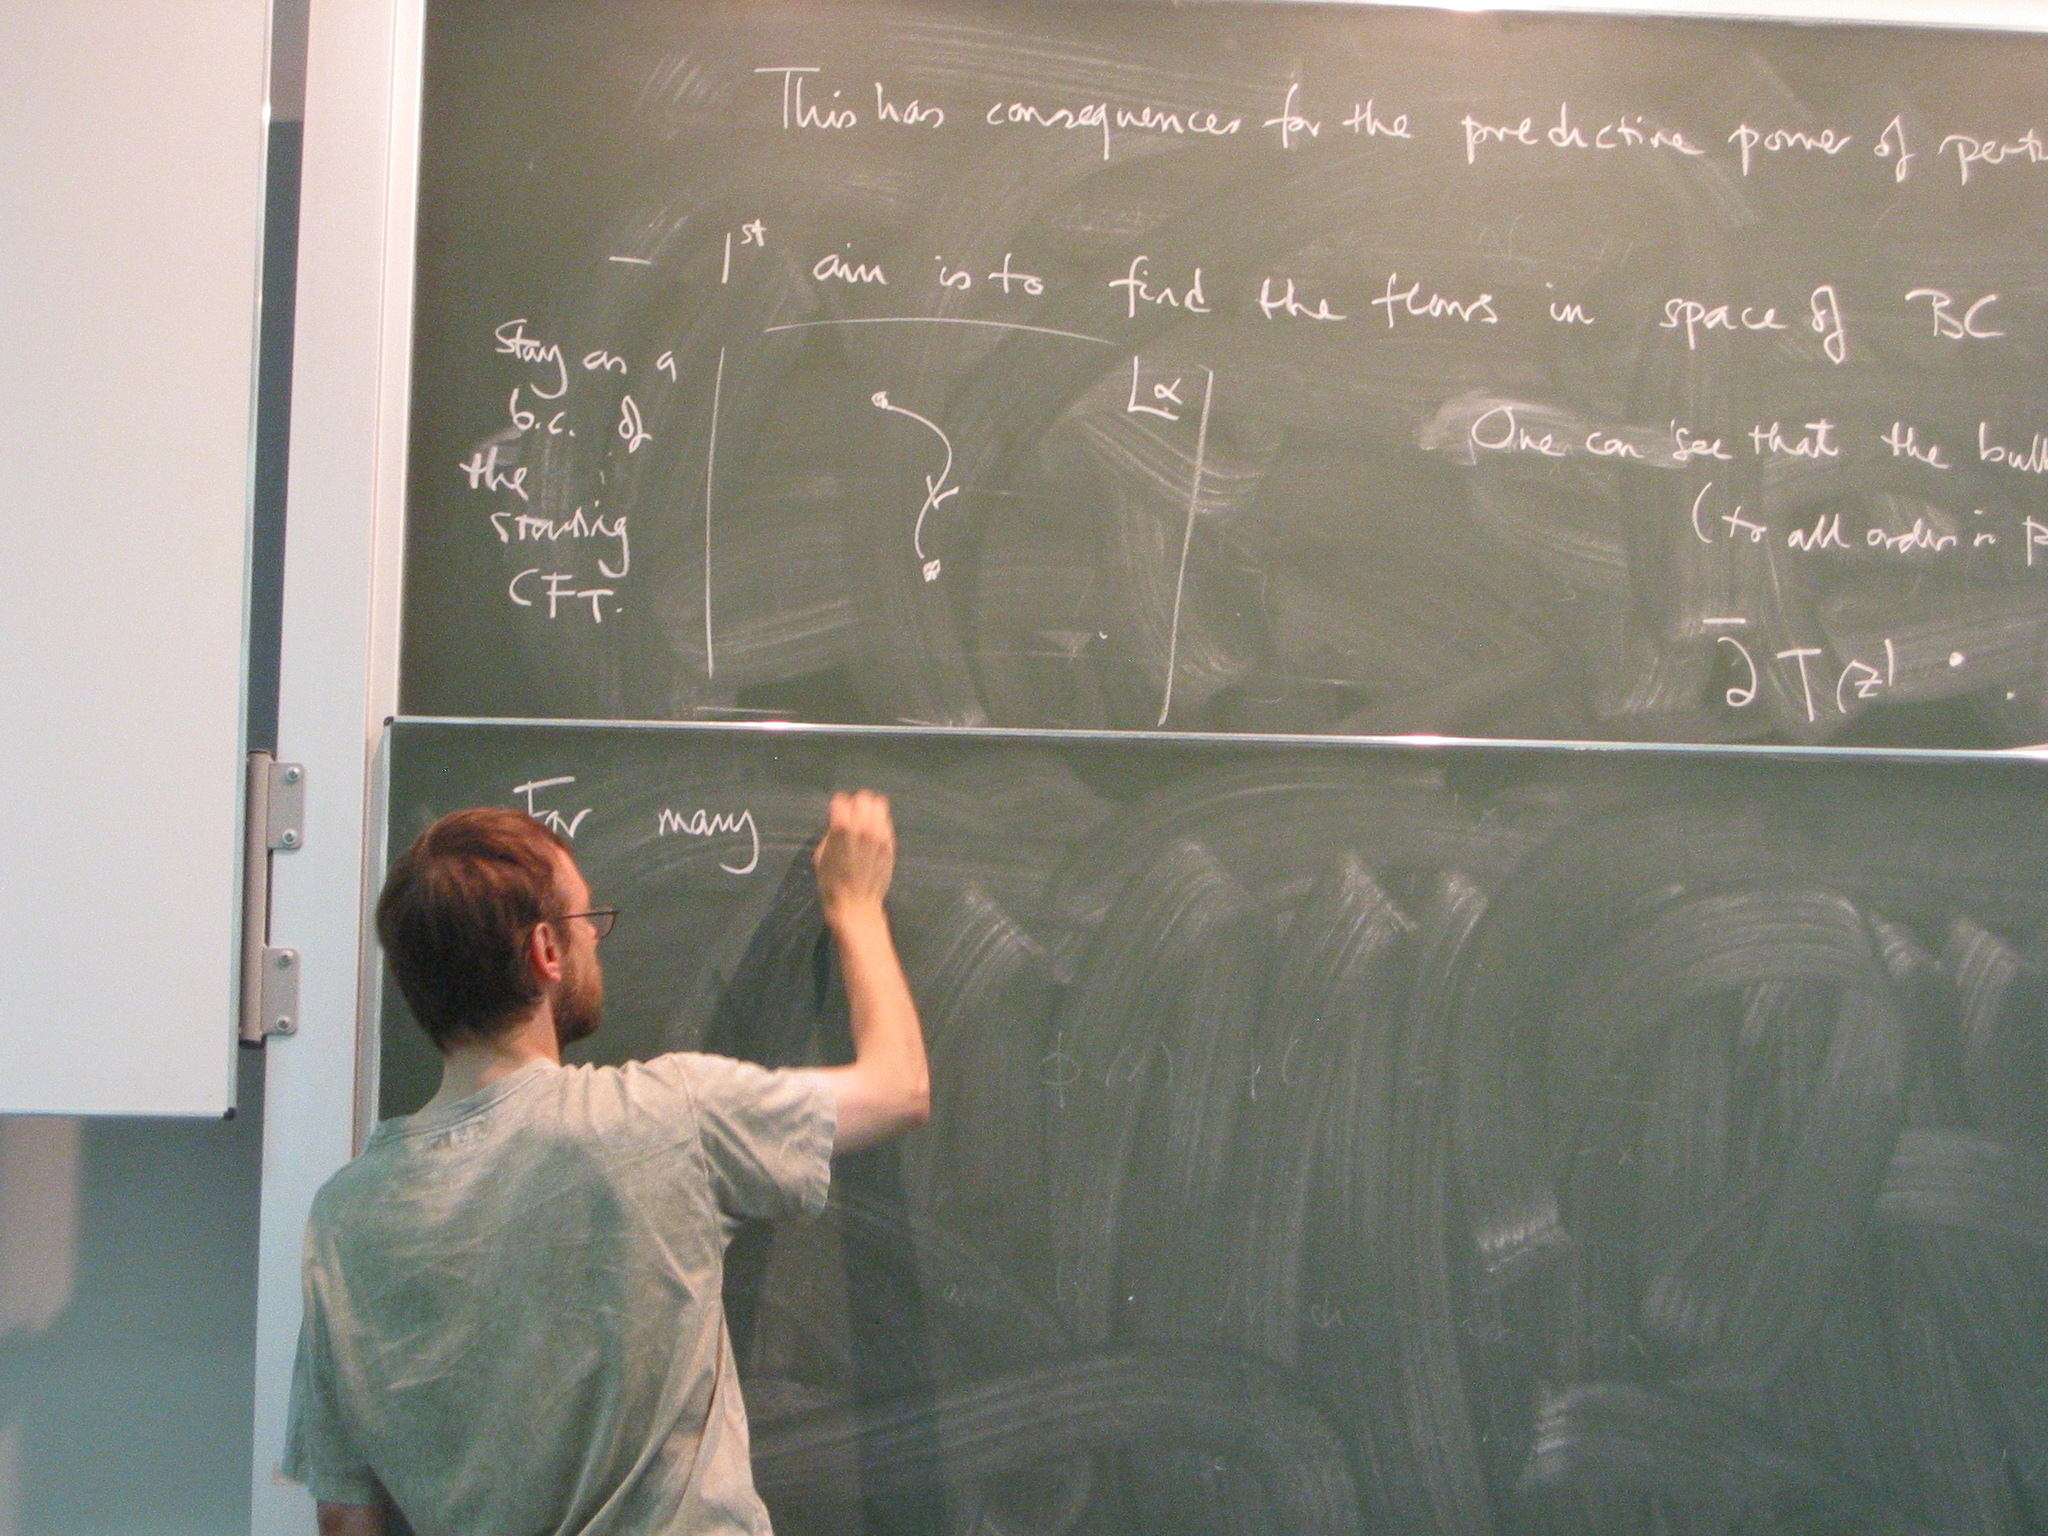 This has consequences for the predictive power of pert
– 1st aim is to find the flows in space of BC
Stay as a
b.c. of
the
starting
CFT.
α
One can see that the bulk
(to all orders in p
∂̄ T(z)
For many